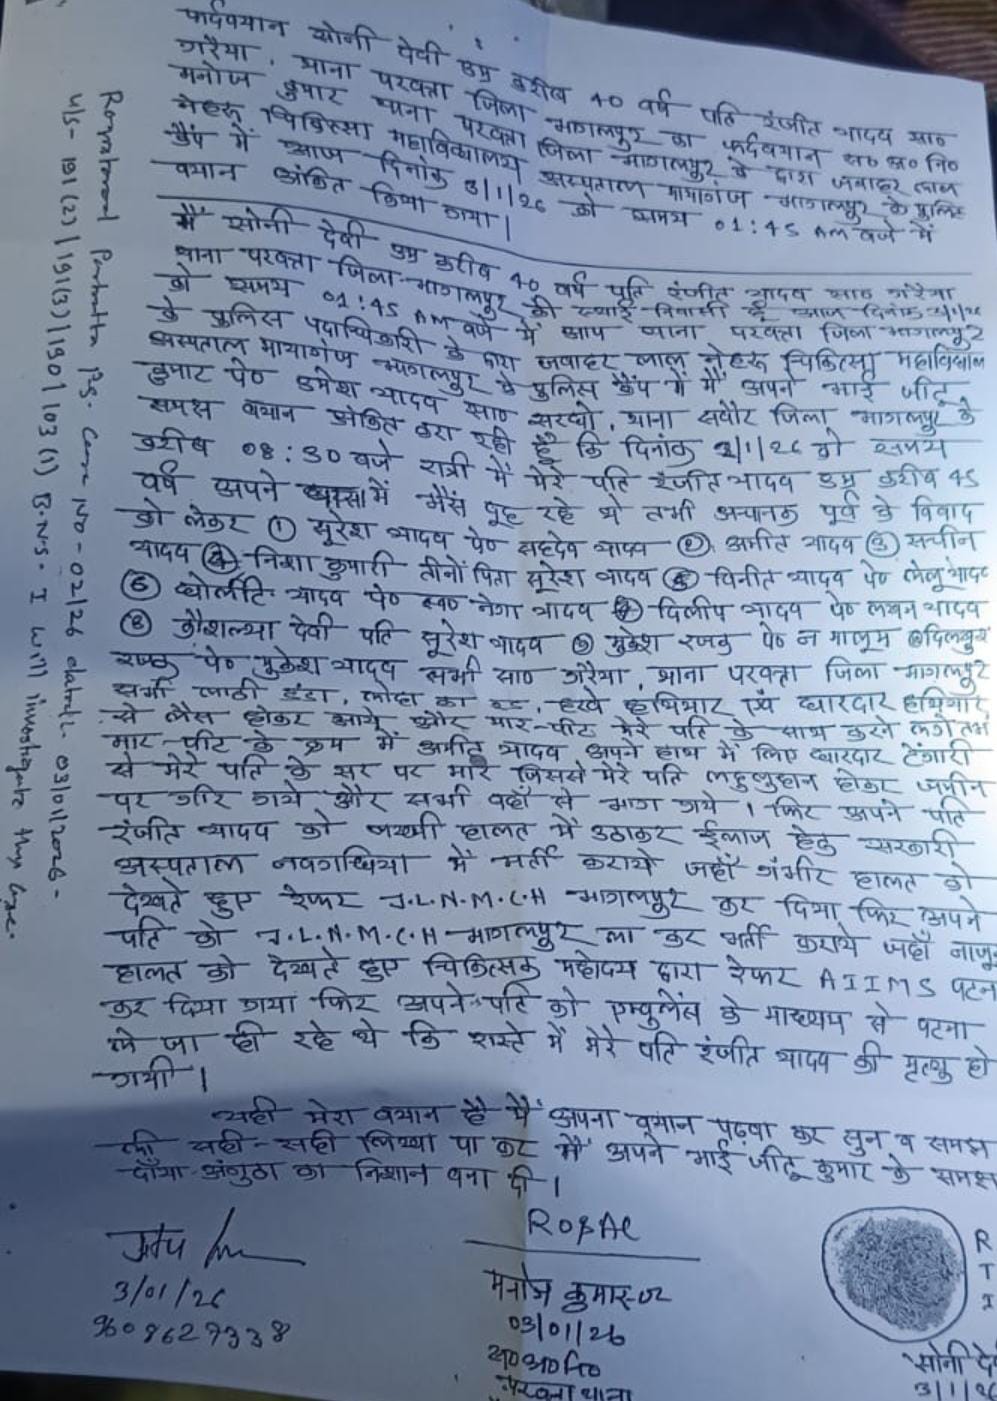 फर्दवयान सोनी देवी उम्र करीब 40 वर्ष पति रंजीत यादव सा०
गरैया, थाना परवत्ता जिला भागलपुर का फर्दवयान स० अ० नि०
मनोज कुमार थाना परवत्ता जिला भागलपुर के द्वारा जवाहर लाल
नेहरू चिकित्सा महाविधालय अस्पताल मायागंज भागलपुर के पुलिस
कैंप में आज दिनांक 3/1/26 को समय 01:45 AM बजे में
वयान अंकित किया गया।
मैं सोनी देवी उम्र करीब 40 वर्ष पति रंजीत यादव सा० गरैया
थाना परवत्ता जिला-भागलपुर की स्थाई निवासी हूँ आज दिनांक 3/1/26
को समय 01:45 AM बजे में आप थाना परवत्ता जिला भागलपुर
के पुलिस पदाधिकारी के द्वारा जवाहर लाल नेहरू चिकित्सा महाविधाल
अस्पताल मायागंज भागलपुर के पुलिस कैंप में मैं अपने भाई जीटू
कुमार पे० उमेश यादव सा० सरधो, थाना सबौर जिला भागलपुर के
समक्ष वयान अंकित करा रही हूँ कि दिनांक 2/1/26 को समय
करीब 08:30 बजे रात्री में मेरे पति रंजीत यादव उम्र करीब 45
वर्ष अपने बासा में भैंस दुह रहे थे तभी अचानक पूर्व के विवाद
को लेकर ① सुरेश यादव पे० सहदेव यादव ② अमीत यादव ③ सचीन
यादव ④ निशा कुमारी तीनों पिता सुरेश यादव ⑤ विनीत यादव पे० लेलू यादव
⑥ यादव पे० स्व० नेगा यादव ⑦ दिलीप यादव पे० लखन यादव
⑧ कौशल्या देवी पति सुरेश यादव ⑨ मुकेश रजक पे० न मालूम ⑩ दिलखुश
रजक पे० मुकेश यादव सभी सा० गरैया, थाना परवत्ता जिला भागलपुर
सभी लाठी डंडा, लोहा का रड, हरवे हथियार एवं धारदार हथियार
से लैस होकर आये और मार-पीट मेरे पति के साथ करने लगे तभी
मार-पीट के क्रम में अमीत यादव अपने हाथ में लिए धारदार टेंगारी
से मेरे पति के सर पर मारे जिससे मेरे पति लहुलुहान होकर जमीन
पर गीर गये और सभी वहाँ से भाग गये। फिर अपने पति
रंजीत यादव को जख्मी हालत में उठाकर ईलाज हेतु सरकारी
अस्पताल नवगछिया में भर्ती कराये जहाँ गंभीर हालत को
देखते हुए रेफर J.L.N.M.C.H भागलपुर कर दिया फिर अपने
पति को J.L.N.M.C.H भागलपुर ला कर भर्ती कराये जहाँ नाजूक
हालत को देखते हुए चिकित्सक महोदय द्वारा रेफर AIIMS पटना
कर दिया गया फिर अपने पति को एम्बुलेंस के माध्यम से पटना
ले जा ही रहे थे कि रास्ते में मेरे पति रंजीत यादव की मृत्यु हो
गयी।
यही मेरा वयान है मैं अपना वयान पढ़वा कर सुन व समझ
ली सही-सही लिखा पा कर मैं अपने भाई जीटू कुमार के समक्ष
दाँया अंगुठा का निशान बना दी।
3/01/26
9608627338
RO&AC
मनोज कुमार-02
03/01/26
स०अ०नि०
परवत्ता थाना
R
T
I
सोनी दे
3/1/26
Registered Parbatta P.S. Case No-02/26 dated-03/01/2026-
U/S-191(2)/191(3)/190/103(1) B.N.S. I will investigate this case.